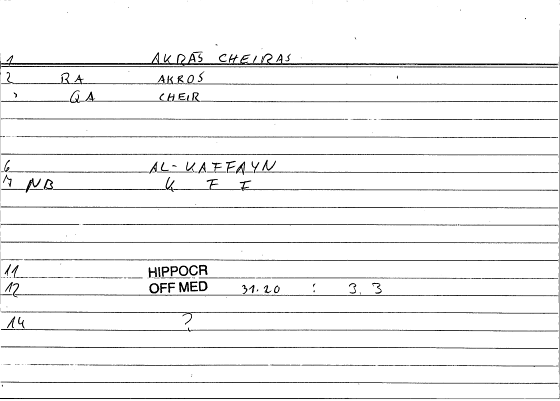 1 AKRAS CHEIRAS
2 RA AKROS
QA CHEIR
6 AL-KAFFAYN
7 NB K F F
11 HIPPOCR
12 OFF MED 31.20 : 3.3
14 ?